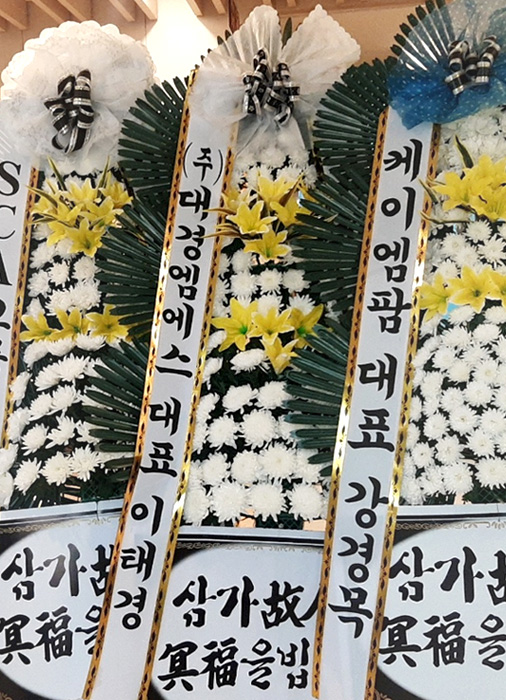 SCA
(주)대경엠에스 대표 이태경
케이엠팜 대표 강경목
삼가故
冥福을
삼가故人
冥福을빕
삼가故
冥福을빕